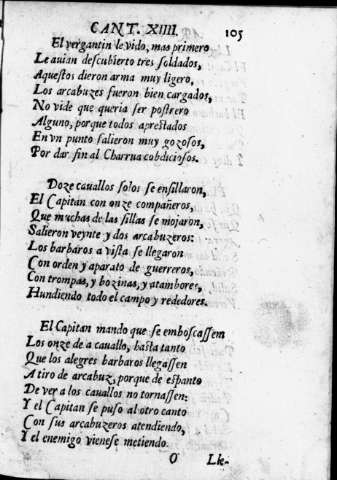 CANT. XIIII. 105
El vergantin le vido, mas primero
Le auian descubierto tres soldados,
Aquestos dieron arma muy ligero,
Los arcabuzes fueron bien cargados,
No vide que queria ser postrero
Alguno, porque todos aprestados
En vn punto salieron muy gozosos,
Por dar fin al Charrua cobdiciosos.
Doze cauallos solos se ensillaron,
El Capitan con onze compañeros,
Que muchas de las sillas se mojaron,
Salieron veynte y dos arcabuzeros:
Los barbaros a vista se llegaron
Con orden y aparato de guerreros,
Con trompas, y bozinas, y atambores,
Hundiendo todo el campo y rededores.
El Capitan mando que se emboscassem
Los onze de a cauallo, hasta tanto
Que los alegres barbaros llegassen
A tiro de arcabuz, porque de espanto
De ver a los cauallos no tornassen:
Y el Capitan se puso al otro canto
Con sus arcabuzeros atendiendo,
Y el enemigo viense metiendo.
O Lle-